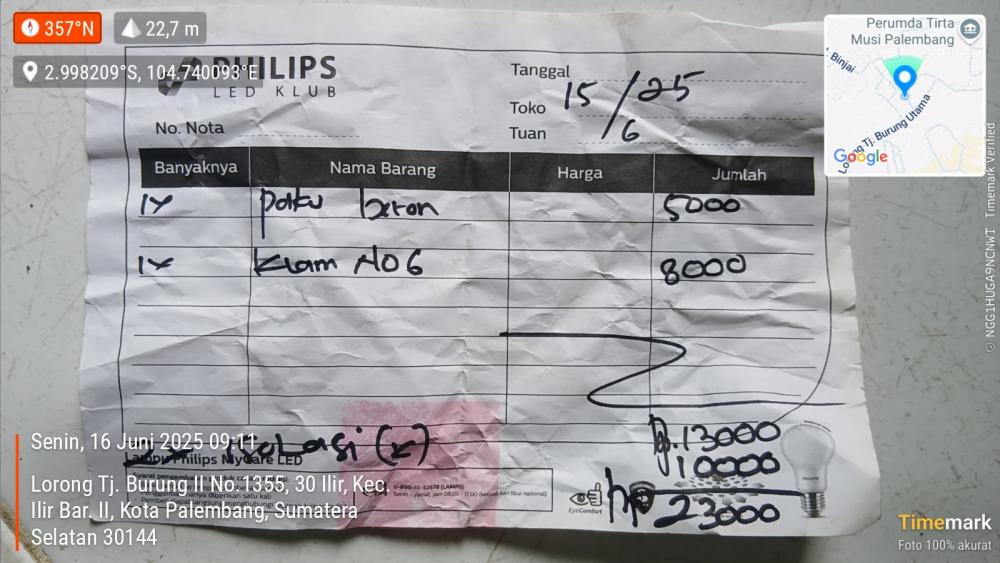 357°N
22,7 m
2.998209°S, 104.740093°E
PHILIPS
LED KLUB
Tanggal
Toko
Tuan
15/6/25
No. Nota
Banyaknya Nama Barang Harga Jumlah
1x paku beton 5000
1x Klam NO 6 8000
Rp. 13000
2x isolasi (x) 10000
Rp 23000
Lampu Philips MyCare LED
0-800-10-52678 (LAMPU)
Senin - Jumat, jam 08:00 - 17:00 (kecuali hari libur nasional)
EyeComfort
PHILIPS
Senin, 16 Juni 2025 09:11
Lorong Tj. Burung I No.1355, 30 Ilir, Kec.
Ilir Bar. II, Kota Palembang, Sumatera
Selatan 30144
Perumda Tirta
Musi Palembang
Binjai
Lorong Tj. Burung Utama
Google
© NGG1HUGA9NCNWT Timemark Verified
Timemark
Foto 100% akurat